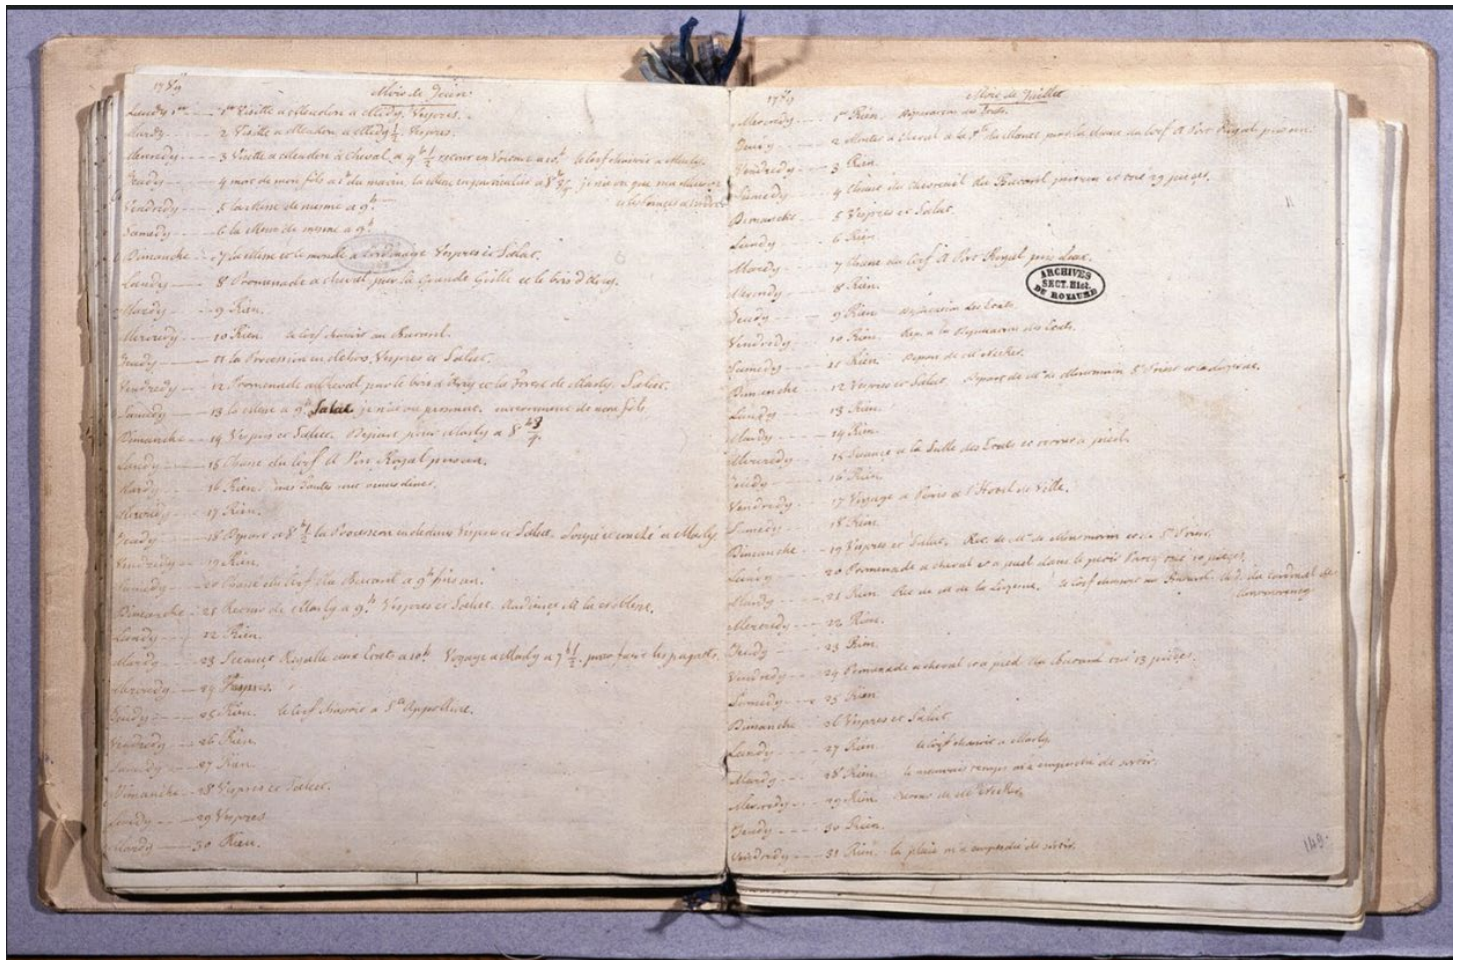 1789
Mois de Juin
Lundy 1er 1er Visitte a Meudon a Midy. Vespres.
Mardy 2 Visitte a Meudon a Midy 1/2. Vespres.
Mercredy 3 Visitte a Meudon a cheval a 9h 1/2 retour en Voiture a 10h le Cerf chassoit a Marly.
Jeudy 4 mort de mon fils a 1h du matin, la Messe en particulier a 8h 3/4 je n'ai vu que ma
et les Princes a
Vendredy 5 la Messe de mesme a 9h
Samedy 6 la Messe de mesme a 9h
Dimanche 7 la Messe et le monde a Vespres et Salut.
Lundy 8 Promenade a cheval par la Grande Grille et le bois d'
Mardy 9 Rien.
Mercredy 10 Rien. le Cerf chassoit au Buvard.
Jeudy 11 la Procession en dehors, Vespres et Salut.
Vendredy 12 Promenade a Cheval par le bois d' et la Forest de Marly. Salut.
Samedy 13 la Messe a 9h Salut je n'ai vu personne. enterrement de mon fils
Dimanche 14 Vespres et Salut. Depart pour Marly a 8h
Lundy 15 Chasse du Cerf A Port Royal pris un.
Mardy 16 Rien.
Mercredy 17 Rien.
Jeudy 18 Depart a 8h 1/2 la Procession en dedans Vespres et Salut. Soupé et couché a Marly.
Vendredy 19 Rien.
Samedy 20 Chasse du Cerf Au Buvard a 9h pris un.
Dimanche 21 Retour de Marly a 9h Vespres et Salut. Audience A la Noblesse.
Lundy 22 Rien.
Mardy 23 Seance Royalle aux Etats a 10h Voyage a Marly a 7h 1/2 pour faire les paquets.
Mercredy 24 Vespres.
Jeudy 25 Rien. le Cerf chassoit a Ste Appolline.
Vendredy 26 Rien.
Samedy 27 Rien.
Dimanche 28 Vespres et Salut.
Lundy 29 Vespres
Mardy 30 Rien.
1789
Mois de Juillet
Mercredy 1er Rien. Deputation des Etats.
Jeudy 2 Monté a cheval a la Pte du Maine pour la chasse du Cerf A Port Royal pris un.
Vendredy 3 Rien.
Samedy 4 Chasse du chevreuil Au Buvard pris un et tué 29 pieces.
Dimanche 5 Vespres et Salut.
Lundy 6 Rien.
Mardy 7 Chasse du Cerf A Port Royal pris deux.
Mercredy 8 Rien.
Jeudy 9 Rien Deputation des Etats.
Vendredy 10 Rien. Rep. a la Deputation des Etats.
Samedy 11 Rien. Depart de Mr Necker.
Dimanche 12 Vespres et Salut. Depart de Mrs de Montmorin St Priest et la Luzerne.
Lundy 13 Rien.
Mardy 14 Rien.
Mercredy 15 Seance a la Salle des Etats et retour a pied.
Jeudy 16 Rien.
Vendredy 17 Voyage a Paris a l'Hotel de Ville.
Samedy 18 Rien.
Dimanche 19 Vespres et Salut. Ret. de Mrs de Montmorin et de St Priest.
Lundy 20 Promenade a cheval et a pied dans le petit Parcq tué 10 pieces.
Mardy 21 Rien. Ret. de Mr de la Luzerne. le Cerf chassoit au Buvard. du Cardinal de
Montmorency
Mercredy 22 Rien.
Jeudy 23 Rien.
Vendredy 24 Promenade a cheval et a pied Au Buvard tué 13 pieces.
Samedy 25 Rien.
Dimanche 26 Vespres et Salut
Lundy 27 Rien. le Cerf chassoit a Marly
Mardy 28 Rien. le mauvais temps m'a empesché de sortir.
Mercredy 29 Rien. Retour de Mr Necker.
Jeudy 30 Rien.
Vendredy 31 Rien. la pluie m'a empesché de sortir.
ARCHIVES
SECT. HIST.
DU ROYAUME
149.